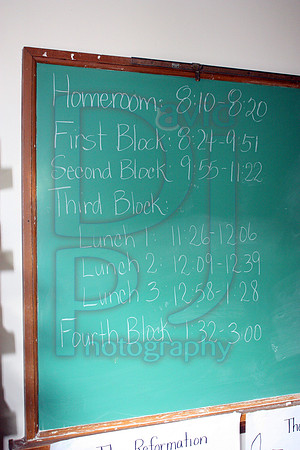 Homeroom: 8:10-8:20
First Block: 8:24-9:51
Second Block: 9:55-11:22
Third Block:
Lunch 1: 11:26-12:06
Lunch 2: 12:09-12:39
Lunch 3, 12:58-1:28
Fourth Block 1:32-3:00
David
DJ
Photography
The Reformation
Th